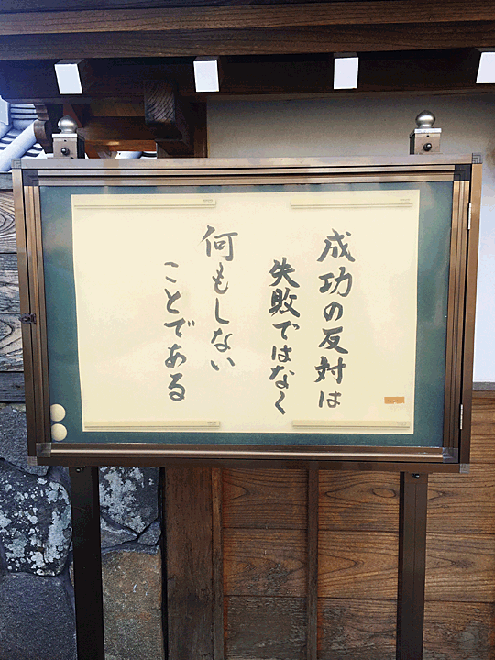 成功の反対は
失敗ではなく
何もしない
ことである